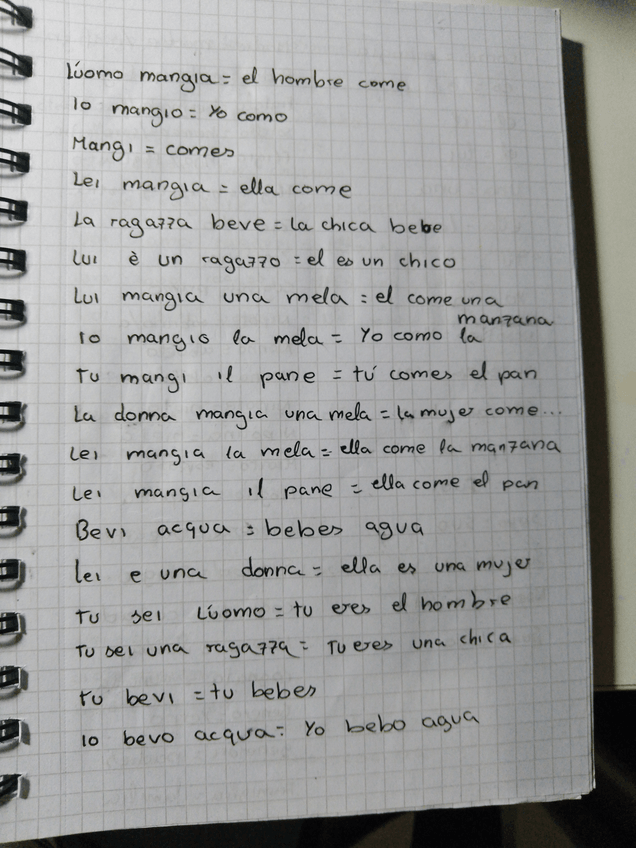 Lúomo mangia = el hombre come
Io mangio = Yo como
Mangi = comes
Lei mangia = ella come
La ragazza beve = la chica bebe
Lui è un ragazzo = el es un chico
Lui mangia una mela = el come una
manzana
Io mangio la mela = Yo como la
Tu mangi il pane = tú comes el pan
La donna mangia una mela = la mujer come...
Lei mangia la mela = ella come la manzana
Lei mangia il pane = ella come el pan
Bevi acqua = bebes agua
Lei e una donna = ella es una mujer
Tu sei Lúomo = tu eres el hombre
Tu sei una ragazza = Tu eres una chica
Tu bevi = tu bebes
Io bevo acqua = Yo bebo agua